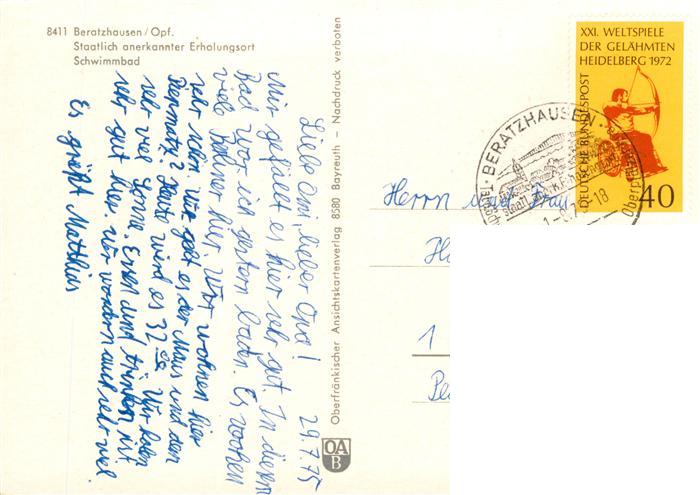 8411 Beratzhausen/Opf.
Staatlich anerkannter Erholungsort
Schwimmbad
Liebe Omi, lieber Opa! 29.7.75
Mir gefällt es hier sehr gut. In diesem
Bad war ich gestern baden. Es wohnen
viele Berliner hier. Wir wohnen hier
sehr schön. Wie geht es der Maus und dem
Piepmatz? Heute wird es 32 °C. Wir haben
sehr viel Sonne. Essen und trinken ist
sehr gut hier. Wir wandern auch sehr viel.
Es grüßt Matthias
Oberfränkischer Ansichtskartenverlag 8580 Bayreuth - Nachdruck verboten
OA
B
XXI. WELTSPIELE
DER GELÄHMTEN
HEIDELBERG 1972
DEUTSCHE BUNDESPOST
40
BERATZHAUSEN
Herrn und Frau
1